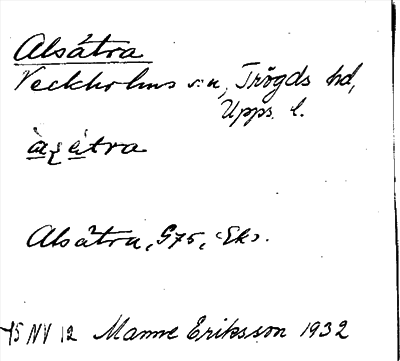 Alsätra
Veckholms sn, Trögds hd,
Upps. l.
Alsätra, G75, Ek.
15 NV 12 Manne Eriksson 1932